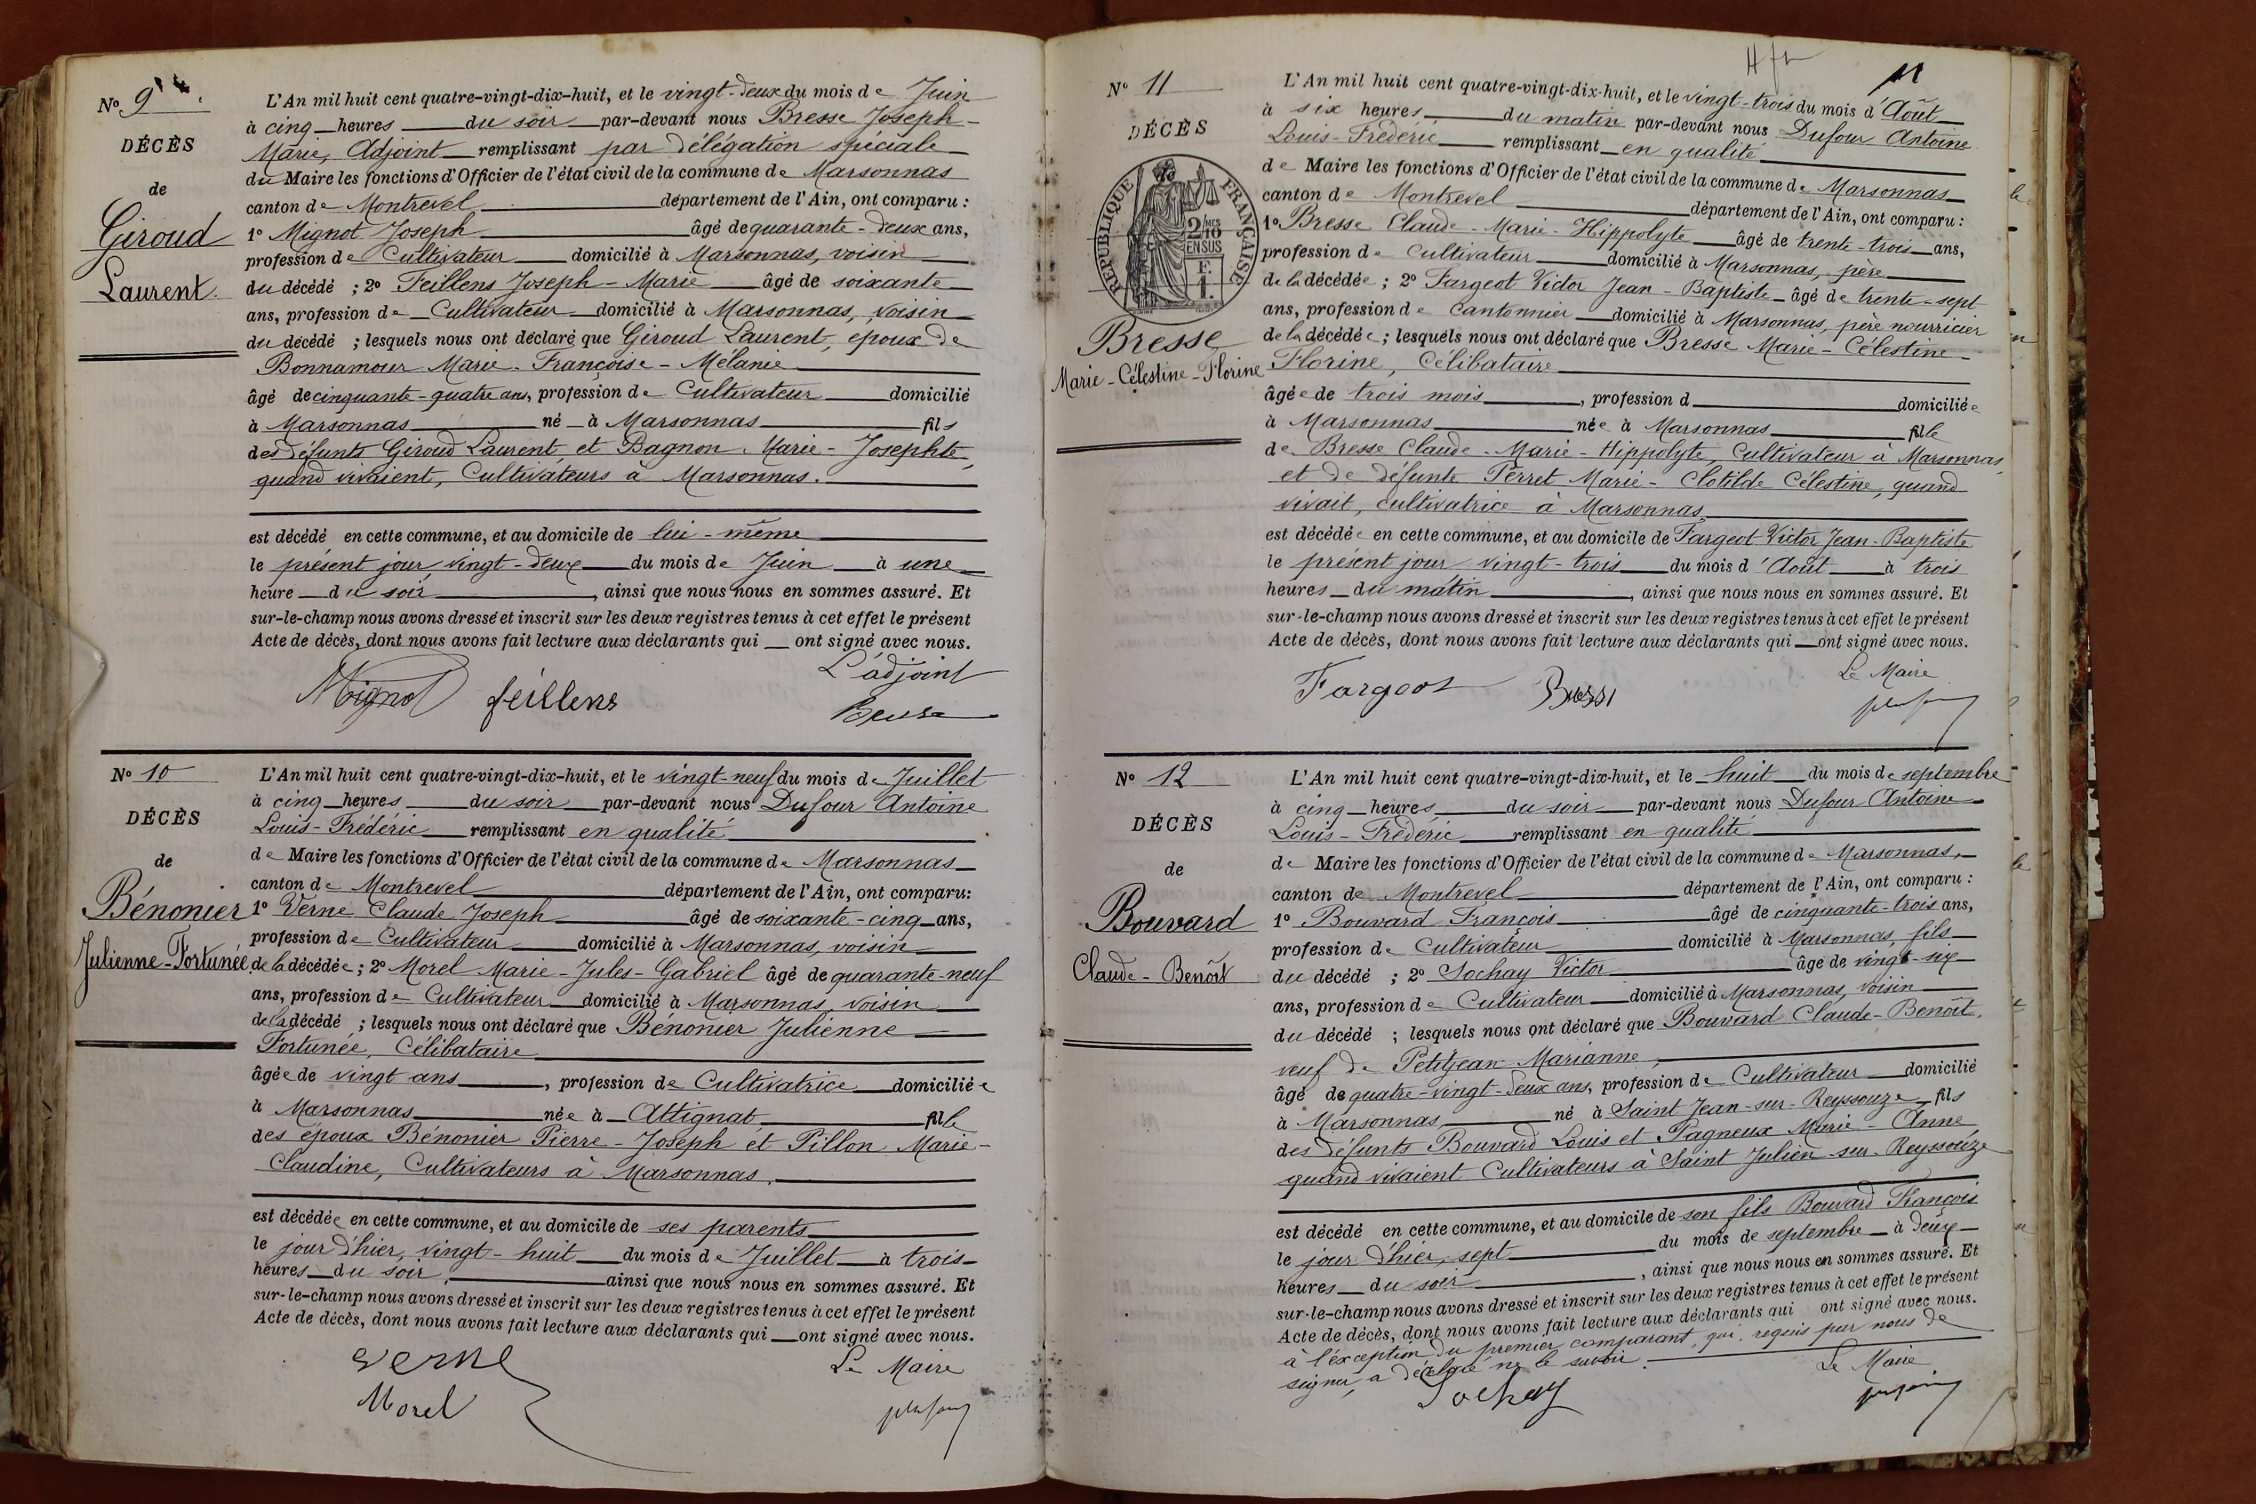 N° 9
DÉCÈS
de
Giroud
Laurent.
L'An mil huit cent quatre-vingt-dix-huit, et le vingt-deux du mois de Juin
à cinq heures du soir par-devant nous Bresse Joseph-
Marie, Adjoint remplissant par délégation spéciale
du Maire les fonctions d'Officier de l'état civil de la commune de Marsonnas
canton de Montrevel département de l'Ain, ont comparu :
1° Mignot Joseph âgé de quarante-deux ans,
profession de Cultivateur domicilié à Marsonnas, voisin
du décédé ; 2° Feillens Joseph-Marie âgé de soixante
ans, profession de Cultivateur domicilié à Marsonnas, voisin
du décédé ; lesquels nous ont déclaré que Giroud Laurent, époux de
Bonnamour Marie-Françoise-Mélanie
âgé de cinquante-quatre ans, profession de Cultivateur domicilié
à Marsonnas né à Marsonnas fils
des défunts Giroud Laurent, et Bagnon Marie-Josephte,
quand vivaient, Cultivateurs à Marsonnas.
est décédé en cette commune, et au domicile de lui-même
le présent jour vingt-deux du mois de Juin à une
heure du soir, ainsi que nous nous en sommes assuré. Et
sur-le-champ nous avons dressé et inscrit sur les deux registres tenus à cet effet le présent
Acte de décès, dont nous avons fait lecture aux déclarants qui ont signé avec nous.
L'adjoint
Mignot feillens Bresse
N° 10
DÉCÈS
de
Bénonier
Julienne-Fortunée
L'An mil huit cent quatre-vingt-dix-huit, et le vingt-neuf du mois de Juillet
à cinq heures du soir par-devant nous Dufour Antoine
Louis-Frédéric remplissant en qualité
de Maire les fonctions d'Officier de l'état civil de la commune de Marsonnas
canton de Montrevel département de l'Ain, ont comparu:
1° Verne Claude Joseph âgé de soixante-cinq ans,
profession de Cultivateur domicilié à Marsonnas, voisin
de la décédée ; 2° Morel Marie-Jules-Gabriel âgé de quarante-neuf
ans, profession de Cultivateur domicilié à Marsonnas, voisin
de la décédé ; lesquels nous ont déclaré que Bénonier Julienne
Fortunée, Célibataire
âgée de vingt ans, profession de Cultivatrice domiciliée
à Marsonnas née à Attignat fille
des époux Bénonier Pierre-Joseph et Pillon Marie-
Claudine, Cultivateurs à Marsonnas,
est décédée en cette commune, et au domicile de ses parents
le jour d'hier, vingt-huit du mois de Juillet à trois
heures du soir, ainsi que nous nous en sommes assuré. Et
sur-le-champ nous avons dressé et inscrit sur les deux registres tenus à cet effet le présent
Acte de décès, dont nous avons fait lecture aux déclarants qui ont signé avec nous.
Verne Le Maire
Morel
11
N° 11
DÉCÈS
RÉPUBLIQUE FRANÇAISE
2/10
EN SUS
F.
1.
Bresse
Marie-Célestine-Florine
L'An mil huit cent quatre-vingt-dix-huit, et le vingt-trois du mois d'Août
à six heures du matin par-devant nous Dufour Antoine
Louis-Frédéric remplissant en qualité
de Maire les fonctions d'Officier de l'état civil de la commune de Marsonnas
canton de Montrevel département de l'Ain, ont comparu :
1° Bresse Claude-Marie-Hippolyte âgé de trente-trois ans,
profession de Cultivateur domicilié à Marsonnas, père
de la décédée ; 2° Fargeot Victor Jean-Baptiste âgé de trente-sept
ans, profession de Cantonnier domicilié à Marsonnas, père nourricier
de la décédée ; lesquels nous ont déclaré que Bresse Marie-Célestine-
Florine, Célibataire
âgée de trois mois, profession d domiciliée
à Marsonnas née à Marsonnas fille
de Bresse Claude-Marie-Hippolyte, Cultivateur à Marsonnas,
et de défunte Perret Marie-Clotilde Célestine, quand
vivait, cultivatrice à Marsonnas
est décédée en cette commune, et au domicile de Fargeot Victor Jean-Baptiste
le présent jour vingt-trois du mois d'Août à trois
heures du matin, ainsi que nous nous en sommes assuré. Et
sur-le-champ nous avons dressé et inscrit sur les deux registres tenus à cet effet le présent
Acte de décès, dont nous avons fait lecture aux déclarants qui ont signé avec nous.
Le Maire
Fargeot Bresse
N° 12
DÉCÈS
de
Bouvard
Claude-Benoît
L'An mil huit cent quatre-vingt-dix-huit, et le huit du mois de septembre
à cinq heures du soir par-devant nous Dufour Antoine
Louis-Frédéric remplissant en qualité
de Maire les fonctions d'Officier de l'état civil de la commune de Marsonnas,
canton de Montrevel département de l'Ain, ont comparu :
1° Bouvard François âgé de cinquante-trois ans,
profession de Cultivateur domicilié à Marsonnas, fils
du décédé ; 2° Sochay Victor âgé de vingt-six
ans, profession de Cultivateur domicilié à Marsonnas, voisin
du décédé ; lesquels nous ont déclaré que Bouvard Claude-Benoît,
veuf de Petitjean Marianne,
âgé de quatre-vingt-deux ans, profession de Cultivateur domicilié
à Marsonnas né à Saint Jean-sur-Reyssouze fils
des défunts Bouvard Louis et Pagneux Marie-Anne,
quand vivaient Cultivateurs à Saint Julien-sur-Reyssouze
est décédé en cette commune, et au domicile de son fils Bouvard François
le jour d'hier, sept du mois de septembre à deux
heures du soir, ainsi que nous nous en sommes assuré. Et
sur-le-champ nous avons dressé et inscrit sur les deux registres tenus à cet effet le présent
Acte de décès, dont nous avons fait lecture aux déclarants qui ont signé avec nous.
à l'exception du premier comparant, qui, requis par nous de
signer, a déclaré ne le savoir.
Le Maire
Sochay